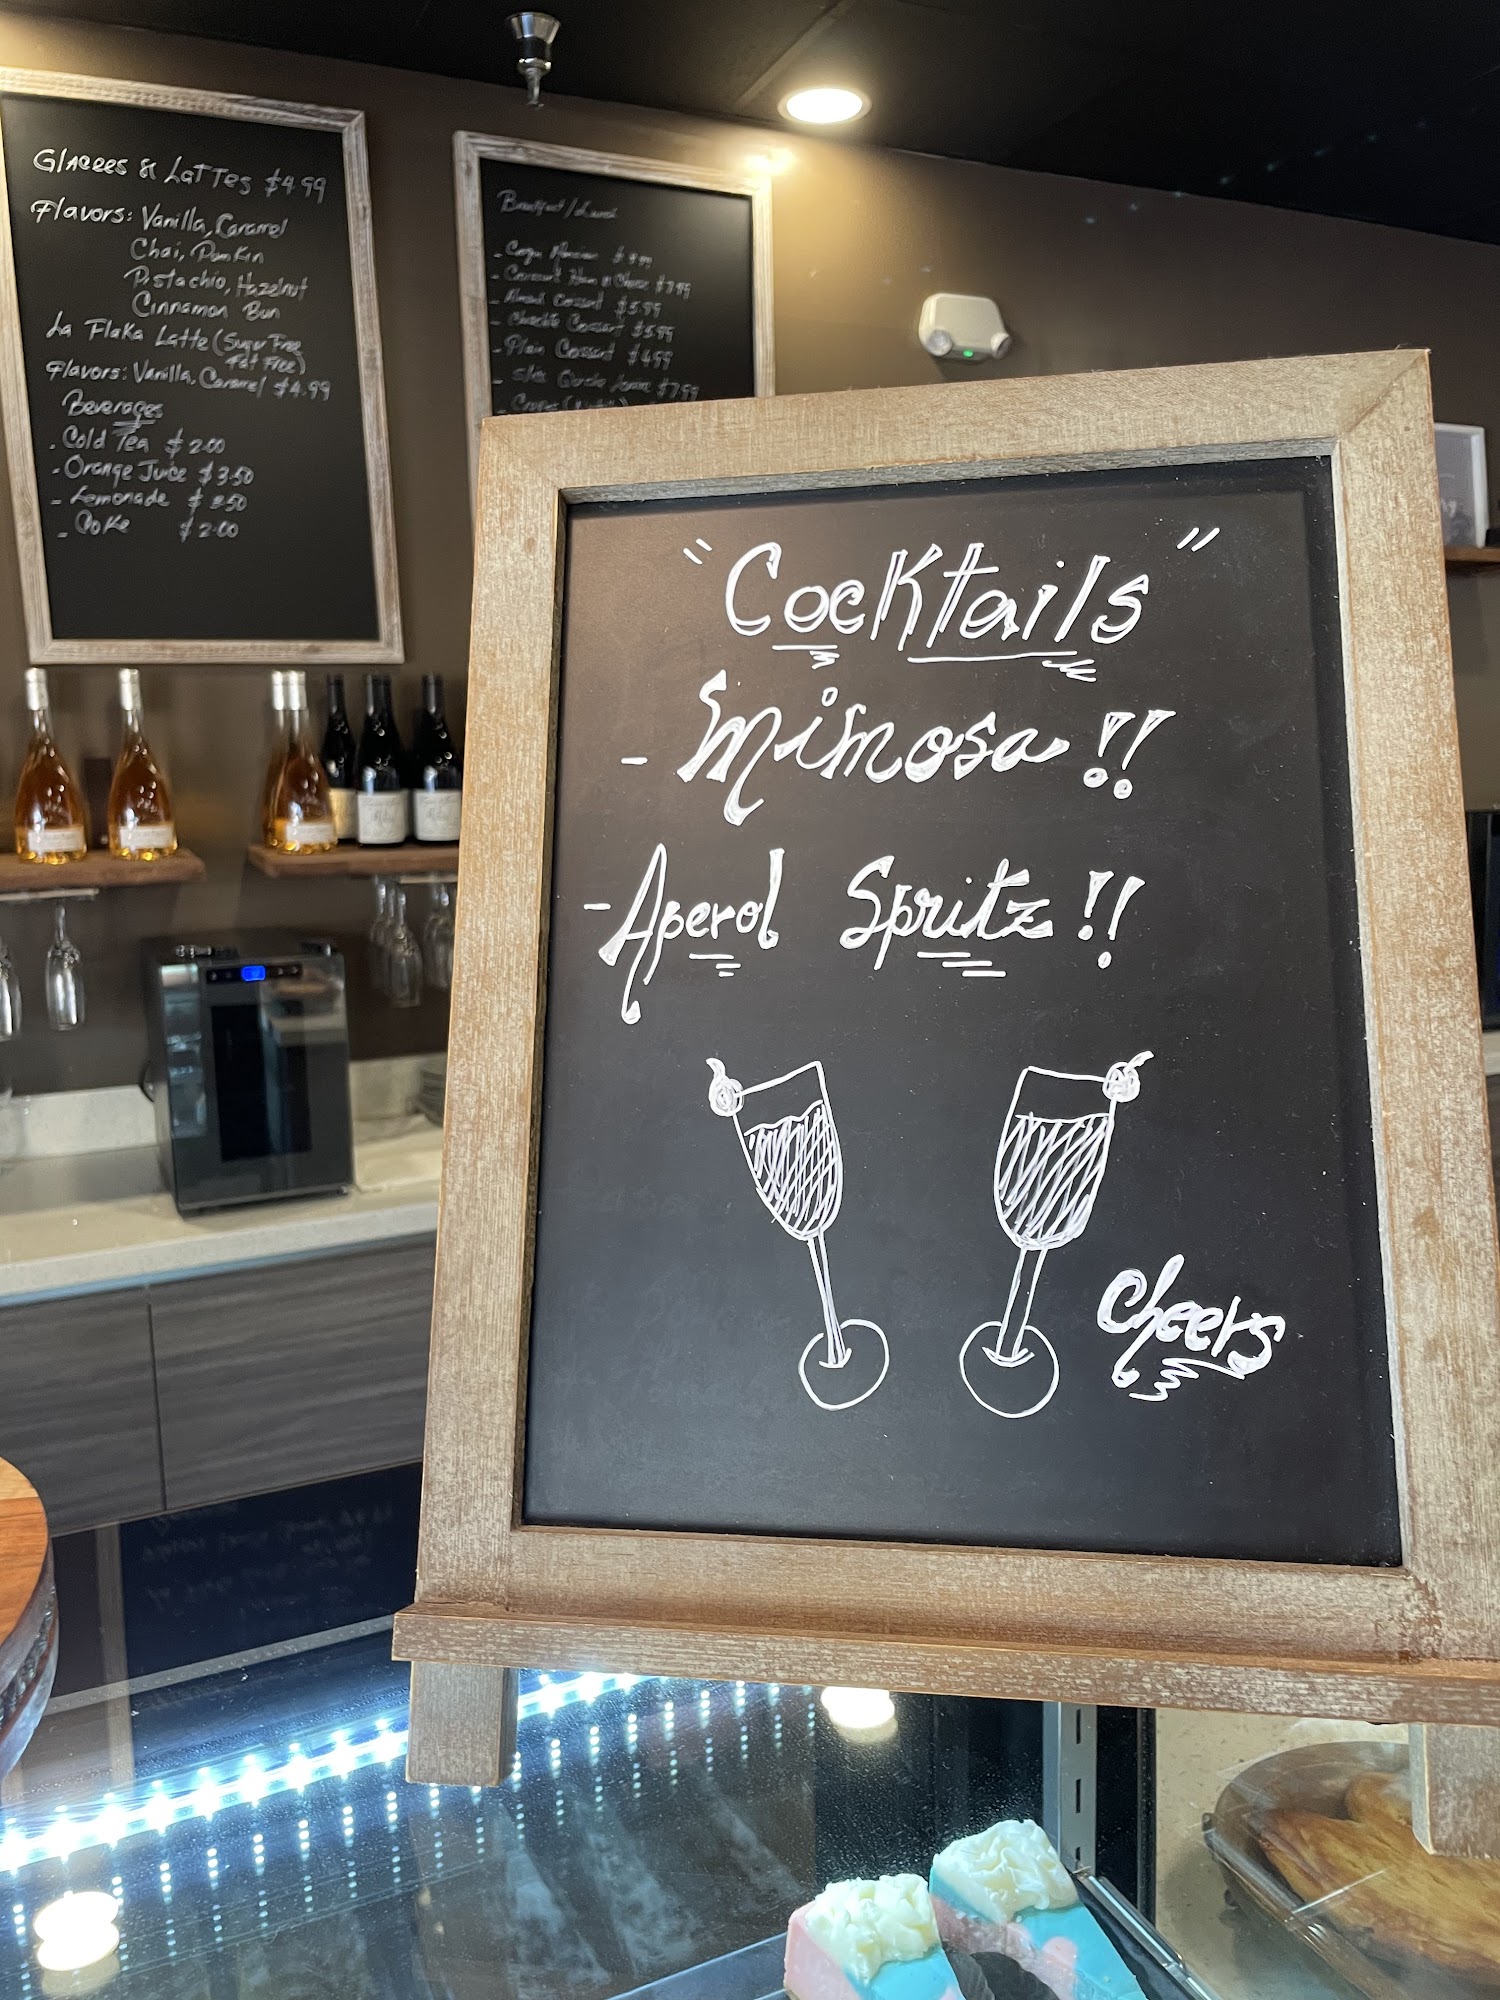 Glacees & Lattes $4.99
Flavors: Vanilla, Caramel
Chai, Pumkin
Pistachio, Hazelnut
Cinnamon Bun
La Flaka Latte (Sugar Free
Fat Free)
Flavors: Vanilla, Caramel $4.99
Beverages
- Cold Tea $2.00
- Orange Juice $3.50
- Lemonade $3.50
- Coke $2.00
Breakfast/Lunch
- Ham & Cheese $7.99
- Almond $5.99
- $5.99
- Plain $4.99
- Slice $7.99
"Cocktails"
- Mimosa!!
- Aperol Spritz!!
Cheers